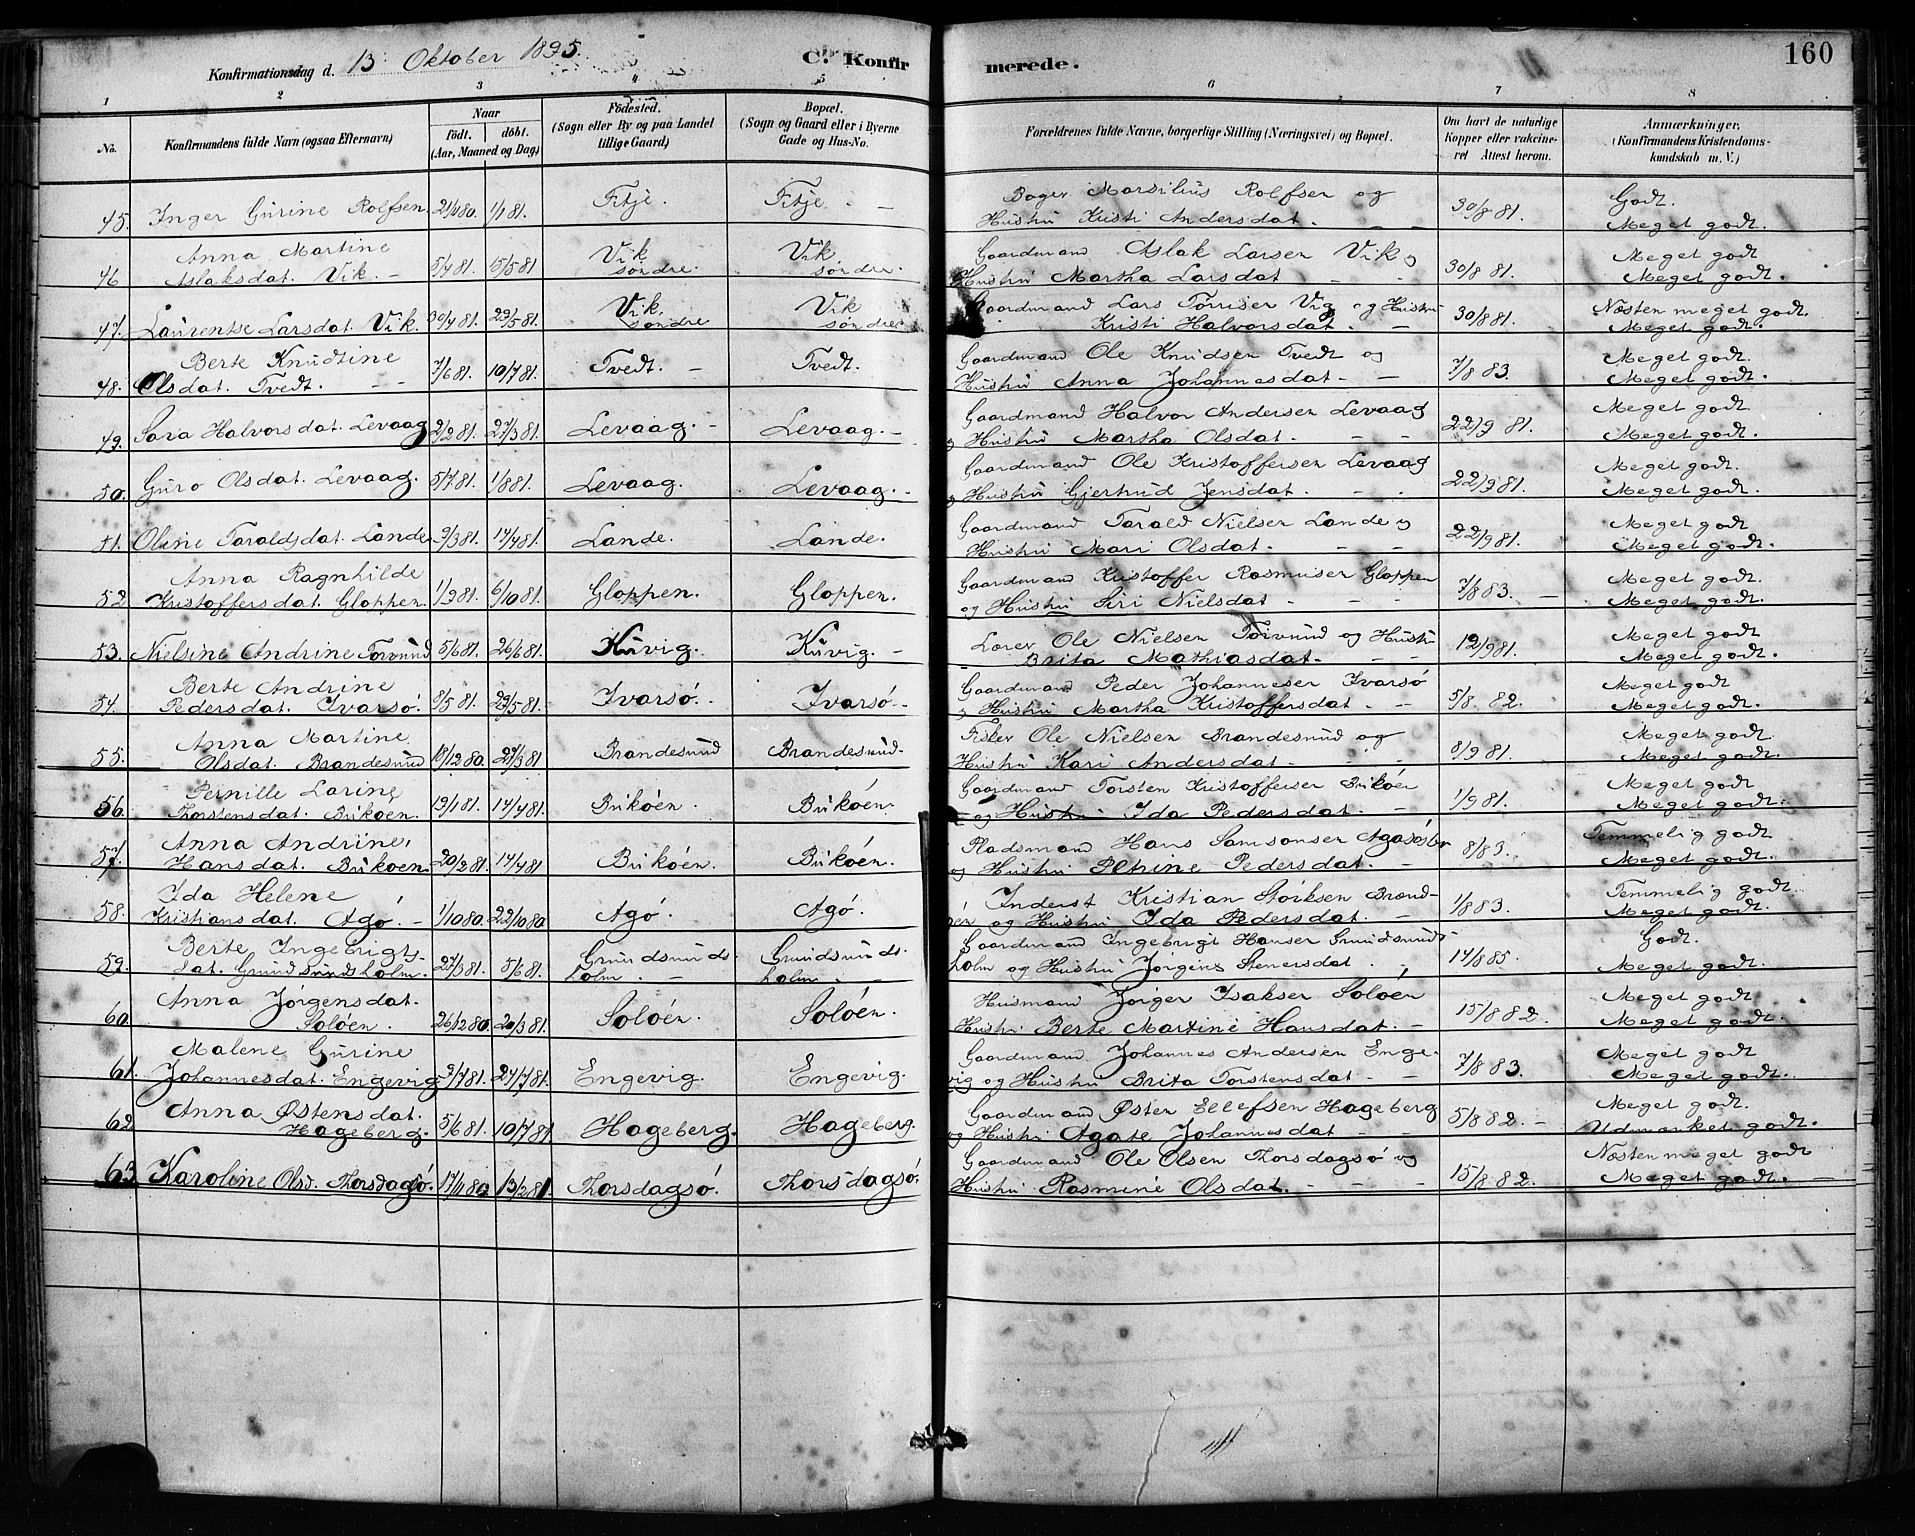 160
Konfirmationsdag d. 13 Oktober 1895.
C. Konfirmerede.
1 2 3 4 5 6 7 8
No.
Konfirmandens fulde Navn (ogsaa Efternavn)
Naar
født. døbt.
(Aar, Maaned og Dag)
Fødested.
(Sogn eller By og paa Landet
tillige Gaard)
Bopæl.
(Sogn og Gaard eller i Byerne
Gade og Hus-No.
Forældrenes fulde Navne, borgerlige Stilling (Næringsvei) og Bopæl.
Om havt de naturlige
Kopper eller vakcine-
ret Attest herom.
Anmærkninger.
(Konfirmandens Kristendoms-
kundskab m. V.)
45. Inger Gurine Rolfsen 1/1 81. Fitje. Fitje. Bager Marsilius Rolfsen og 30/8 81. Godt.
Hustru Kristi Andersdat. Meget godt.
46 Anna Martine 5/4 81. 15/5 81 Vik Vik Gaardmand Aslak Larsen Vik og 30/8 81. Meget godt
Aslaksdat. Vik. søndre. søndre. Hustru Martha Larsdat Meget godt.
47. Laurentse Larsdat. Vik. 30/4 81. 29/5 81. Vik. Vik Gaardmand Lars Tørriser Vig og Hustru 30/8 81. Næsten meget godt.
søndre søndre Kristi Halvorsdat. Meget godt.
48. Berte Knudtine 7/6 81. 10/7 81. Tvedt. Tvedt. Gaardmand Ole Knudsen Tvedt og 7/8 83. Meget godt.
Olsdat. Tvedt. Hustru Anna Johannesdat Meget godt.
49. Sara Halvorsdat. Levaag 2/2 81. 27/3 81. Levaag. Levaag. Gaardmand Halvor Andersen Levaag 22/9 81. Meget godt
og Hustru Martha Olsdat. Meget godt.
50. Guro Olsdat. Levaag. 5/7 81. 1/8 81. Levaag. Levaag. Gaardmand Ole Kristoffersen Levaag 22/9 81. Meget godt.
og Hustru Gjertrud Jensdat. Meget godt.
51. Oline Taraldsdat. Lande 9/3 81. 17/4 81. Lande. Lande. Gaardmand Tarald Nielsen Lande og 22/9 81. Meget godt
Hustru Mari Olsdat. Meget godt.
52 Anna Ragnhilde 1/9 81. 6/10 81. Gloppen. Gloppen. Gaardmand Kristoffer Rasmuser Gloppen 7/8 83. Meget godt
Kristoffersdat. Gloppen. og Hustru Siri Nielsdat Meget godt.
53. Nielsine Andrine Torvund 5/6 81. 26/6 81. Kuvig. Kuvig. Lærer Ole Nielsen Torvund og Hustru 12/9 81. Meget godt
Brita Mathiasdat. Meget godt.
54. Berte Andrine 8/5 81. 29/5 81. Ivarsø. Ivarsø. Gaardmand Peder Johanneser Ivarsø 5/8 82. Meget godt
Pedersdat. Ivarsø. og Hustru Martha Kristoffersdat Meget godt.
55. Anna Martine 18/12 80. 27/3 81. Brandesund Brandesund. Fisker Ole Nielsen Brandesund og 8/9 81. Meget godt
Olsdat. Brandesund Hustru Kari Andersdat Meget godt.
56. Pernille Larine 19/1 81. 17/4 81. Bukøen. Bukøen. Gaardmand Torsten Kristofferser Bukøen 1/9 81. Meget godt
Thorstensdat. Bukøen. og Hustru Ida Pedersdat. Meget godt.
57. Anna Andrine 20/2 81. 17/4 81 Bukøen. Bukøen. Pladsmand Hans Samsonser 8/83. Temmelig godt
Hansdat. Bukøen. og Hustru Petrine Pedersdat. Meget godt.
58. Ida Helene 1/10 80. 22/10 80 Agø. Agø. Inderst Kristian Storksen Brand- 1/8 83. Temmelig godt
Kristiansdat. Agø. og Hustru Ida Pedersdat. Meget godt.
59. Berte Ingebrigts- 27/3 81. 5/6 81. Grundsunds- Grundsunds- Gaardmand Ingebrigt Hanser Grundsunds- 14/8 85. Godt.
dat. Grundsundsholm. holm. holm holm og Hustru Jørgine Stenersdat. Meget godt.
60. Anna Jørgensdat. 26/12 80. 20/3 81. Soløen. Soløen. Husmand Jørger Isakser Soløen 15/8 82. Meget godt
Soløen. Hustru Berte Martine Hansdat. Meget godt.
61. Malene Gurine 3/7 81. 24/7 81. Engevig. Engevig. Gaardmand Johannes Andersen Enge- 7/8 83. Meget godt
Johannesdat. Engevig vig og Hustru Brita Torstensdat Meget godt.
62. Anna Østensdat. 5/6 81. 10/7 81 Hageberg. Hageberg. Gaardmand Østen Ellefsen Hageberg 5/8 82. Meget godt.
Hageberg. og Hustru Agate Johannesdat Udmærket godt.
63. Karoline Olsd. Thorsdagsø. 17/11 80. 13/2 81. Thorsdagsø. Thorsdagsø. Gaardmand Ole Olsen Thorsdagsø og 15/8 82. Næsten meget godt
Hustru Rasmine Olsdat. Meget godt.